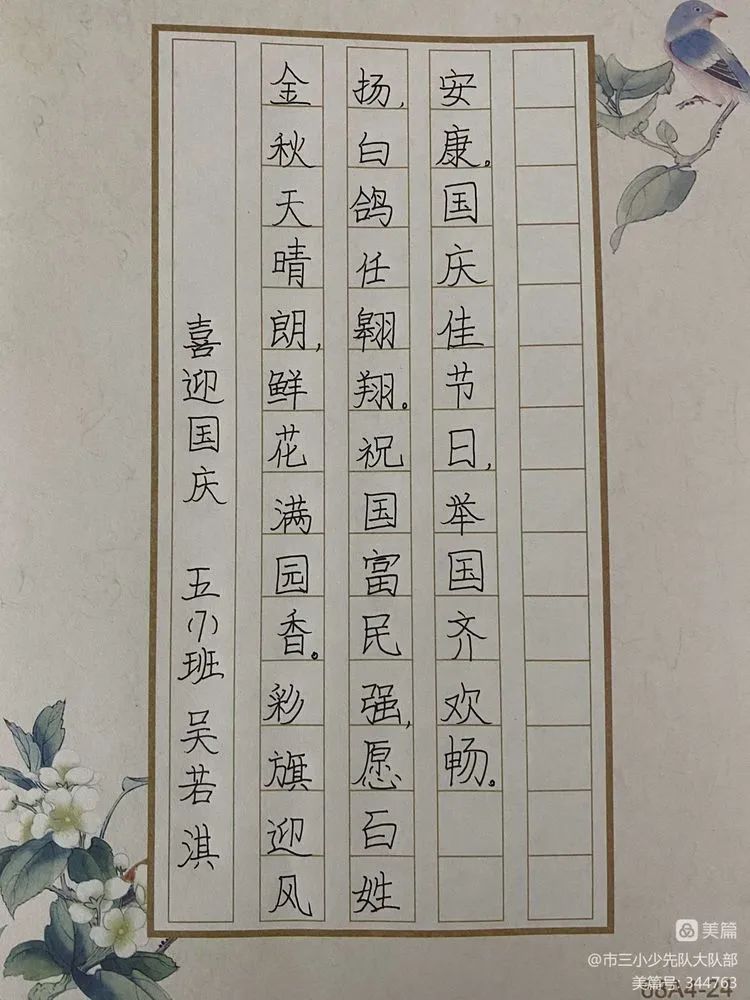 喜迎国庆 五(7)班 吴若淇
金秋天晴朗,鲜花满园香。彩旗迎风
扬,白鸽任翱翔。祝国富民强,愿百姓
安康。国庆佳节日,举国齐欢畅。
美篇
@市三小少先队大队部
美篇号:344763